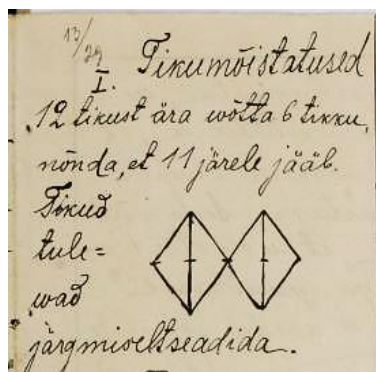 13/29
I. Tikumõistatused
12 tikust ära wõtta 6 tikku,
nõnda, et 11 järele jääb.
Tikud
tule=
wad
järgmiseltseadida.